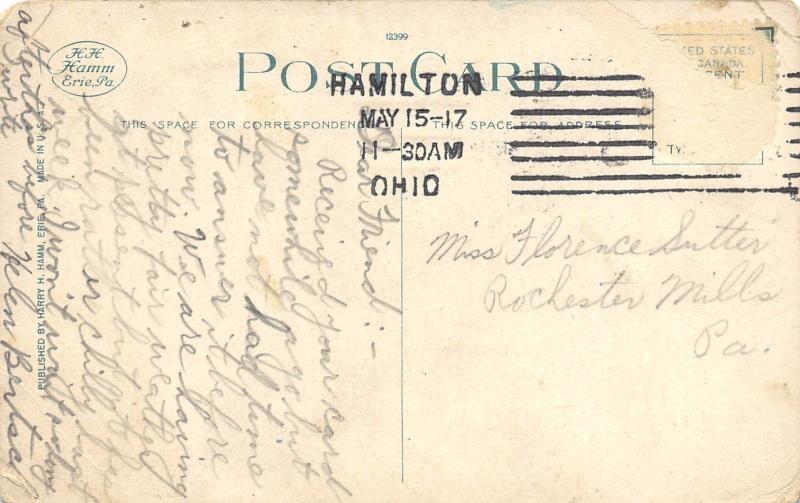 12399
H.H.
Hamm
Erie, Pa.
POST CARD
UNITED STATES
CANADA
CENT
HAMILTON
MAY 15-17
11-30AM
OHIO
THIS SPACE FOR CORRESPONDENCE
THIS SPACE FOR ADDRESS
PUBLISHED BY HARRY H. HAMM, ERIE, PA. MADE IN U.S.A.
Dear Friend:-
Received your card
somewhile ago but
have not had time
to answer it before
now. We are having
pretty fair weather
at present but it has
been rather chilly last
week. Won't
after this before Helen
Miss Florence Sutter
Rochester Mills
Pa.